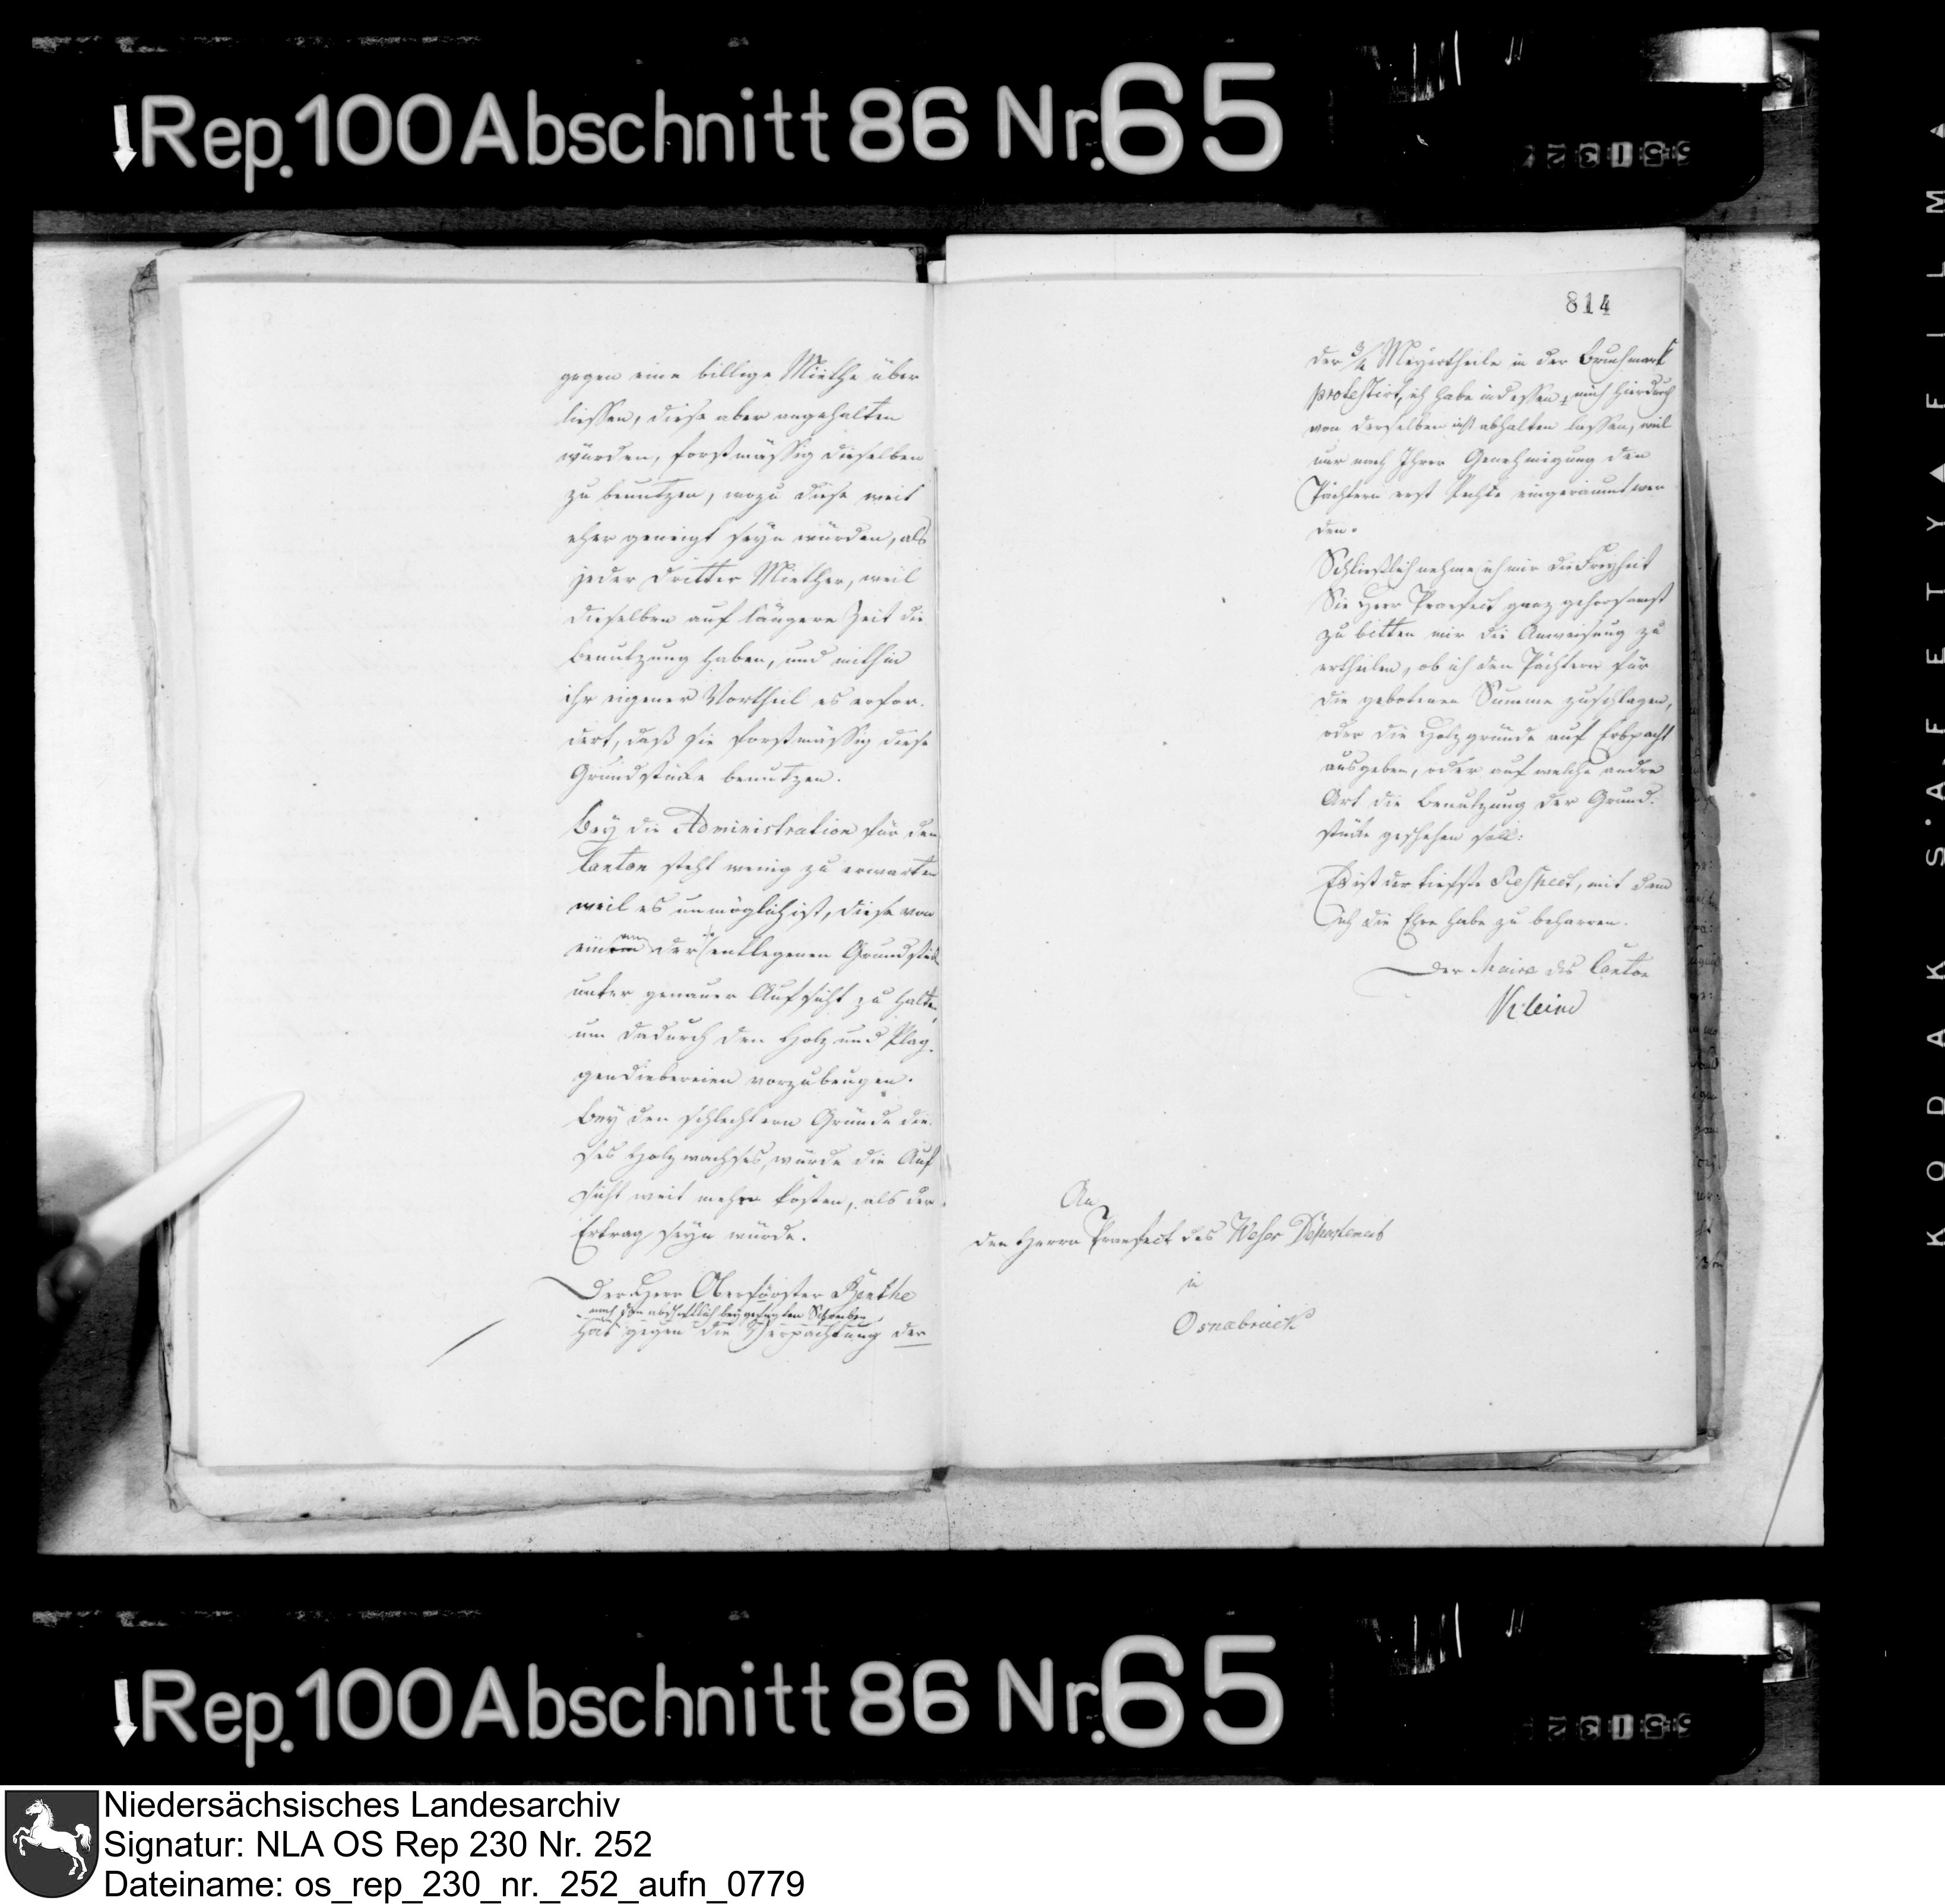 Rep. 100 Abschnitt 86 Nr. 65
gegen eine billige Miethe über
liessen, diese aber angehalten
würden, forstmässig dieselben
zu benutzen, wozu diese weit
eher geneigt seyn würden, als
jeder dritter Miether, weil
dieselben auf längere Zeit die
Benutzung haben, und mithin
ihr eigener Vortheil es erfor-
dert, daß sie forstmässig diese
Grundstücke benutzen.
Bey die Administration für den
Canton steht wenig zu erwarten
weil es unmöglich ist, diese von
einander entlegenen Grundstücke
unter genauer Aufsicht zu halten,
um dadurch den Holz und Plag-
gendiebereien vorzubeugen.
Bey den schlechtern Gründe die-
ses Holzwachses, würde die Auf
sicht weit mehr kosten, als der
Ertrag seyn würde.
Der Herr Oberförster
nach dem abschriftlich beygefügten Schreiben
hat gegen die Verpachtung der
814
der 3/4 Meyertheile in der Bruchmark
protestirt, ich habe indessen mich hierdurch
von derselben nicht abhalten lassen, weil
nur nach Ihrer Genehmigung den
Pächtern erst Rechte eingeräumt wer
den.
Schließlich nehme ich mir die Freyheit
Sie Herr Praefect ganz gehorsamst
zu bitten mir die Anweisung zu
ertheilen, ob ich den Pächtern für
die gebotenen Summe zuschlagen,
oder die Holzgründe auf Erbpacht
ausgeben, oder auf welche andre
Art die Benutzung der Grund-
stücke geschehen soll:
Es ist der tiefste Respect, mit dem
ich die Ehre habe zu beharren.
Der Maire des Canton
Kleine
An
den Herrn Praefect des Weser Departements
in
Osnabrück
Rep. 100 Abschnitt 86 Nr. 65
KODAK SAFETY FILM
Niedersächsisches Landesarchiv
Signatur: NLA OS Rep 230 Nr. 252
Dateiname: os_rep_230_nr._252_aufn_0779